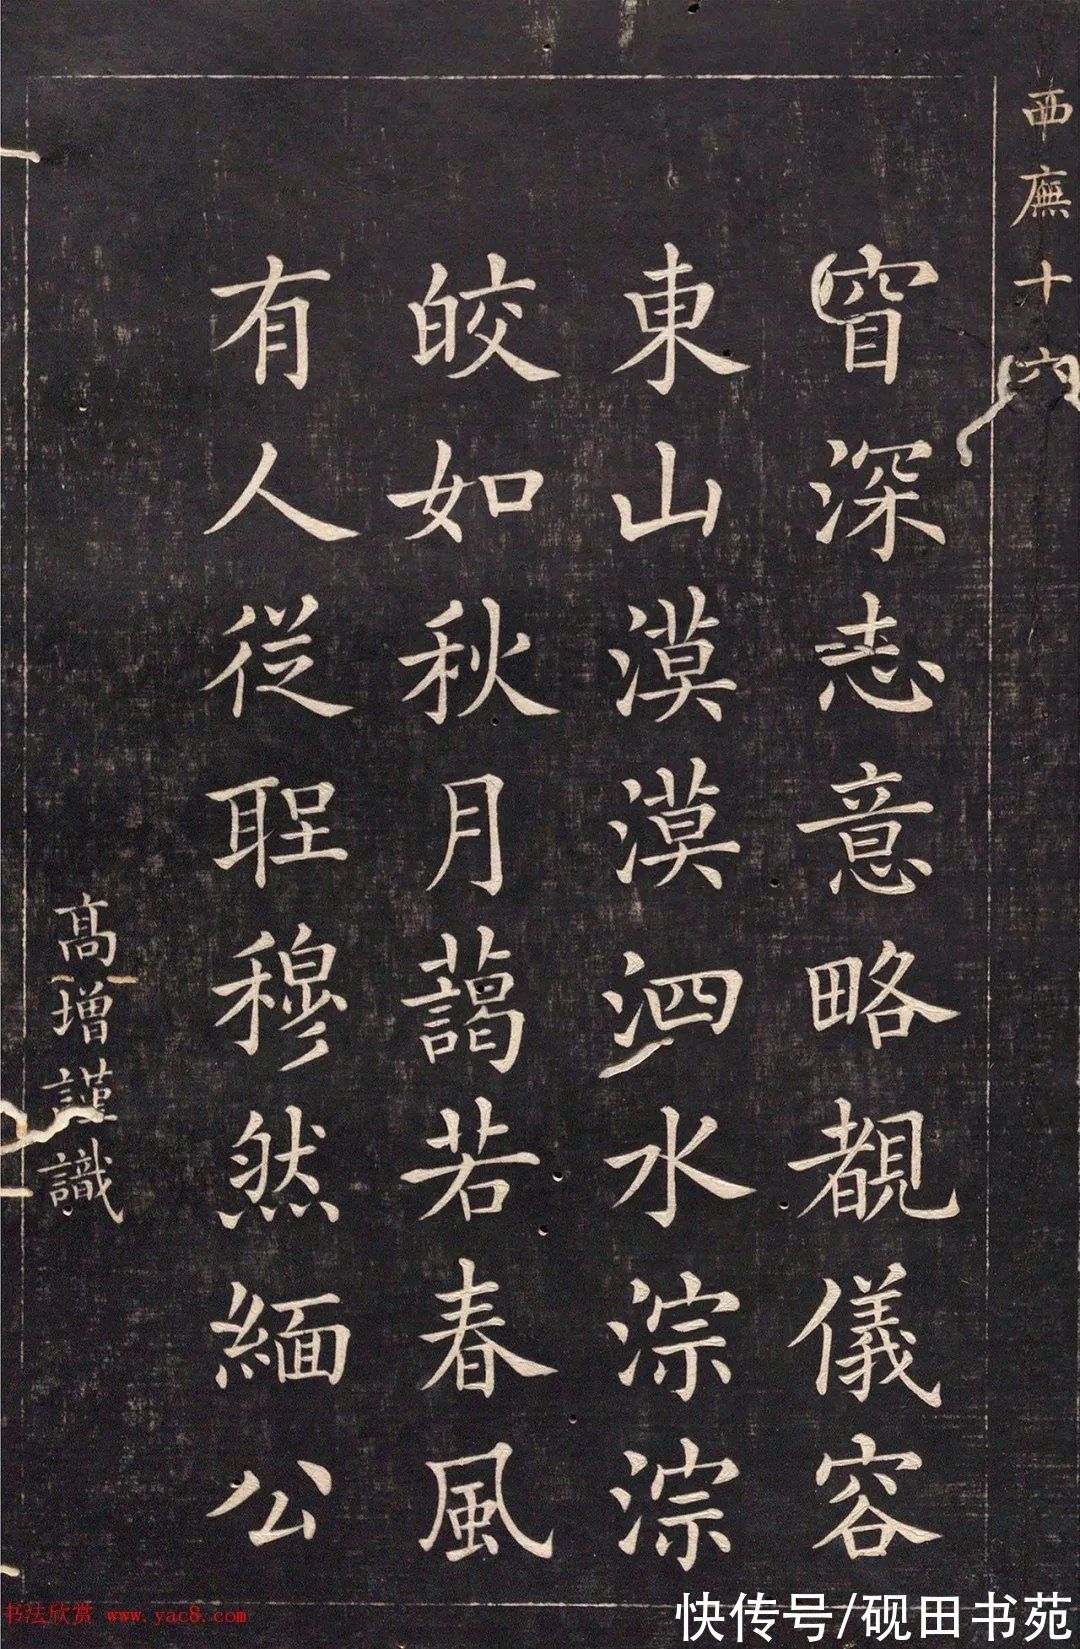 西廡十六
窅深志意略覩儀容
東山漠漠泗水淙淙
皎如秋月藹若春風
有人從 穆然緬公
髙增謹識
书法欣赏 www.yac8.com
快传号/砚田书苑